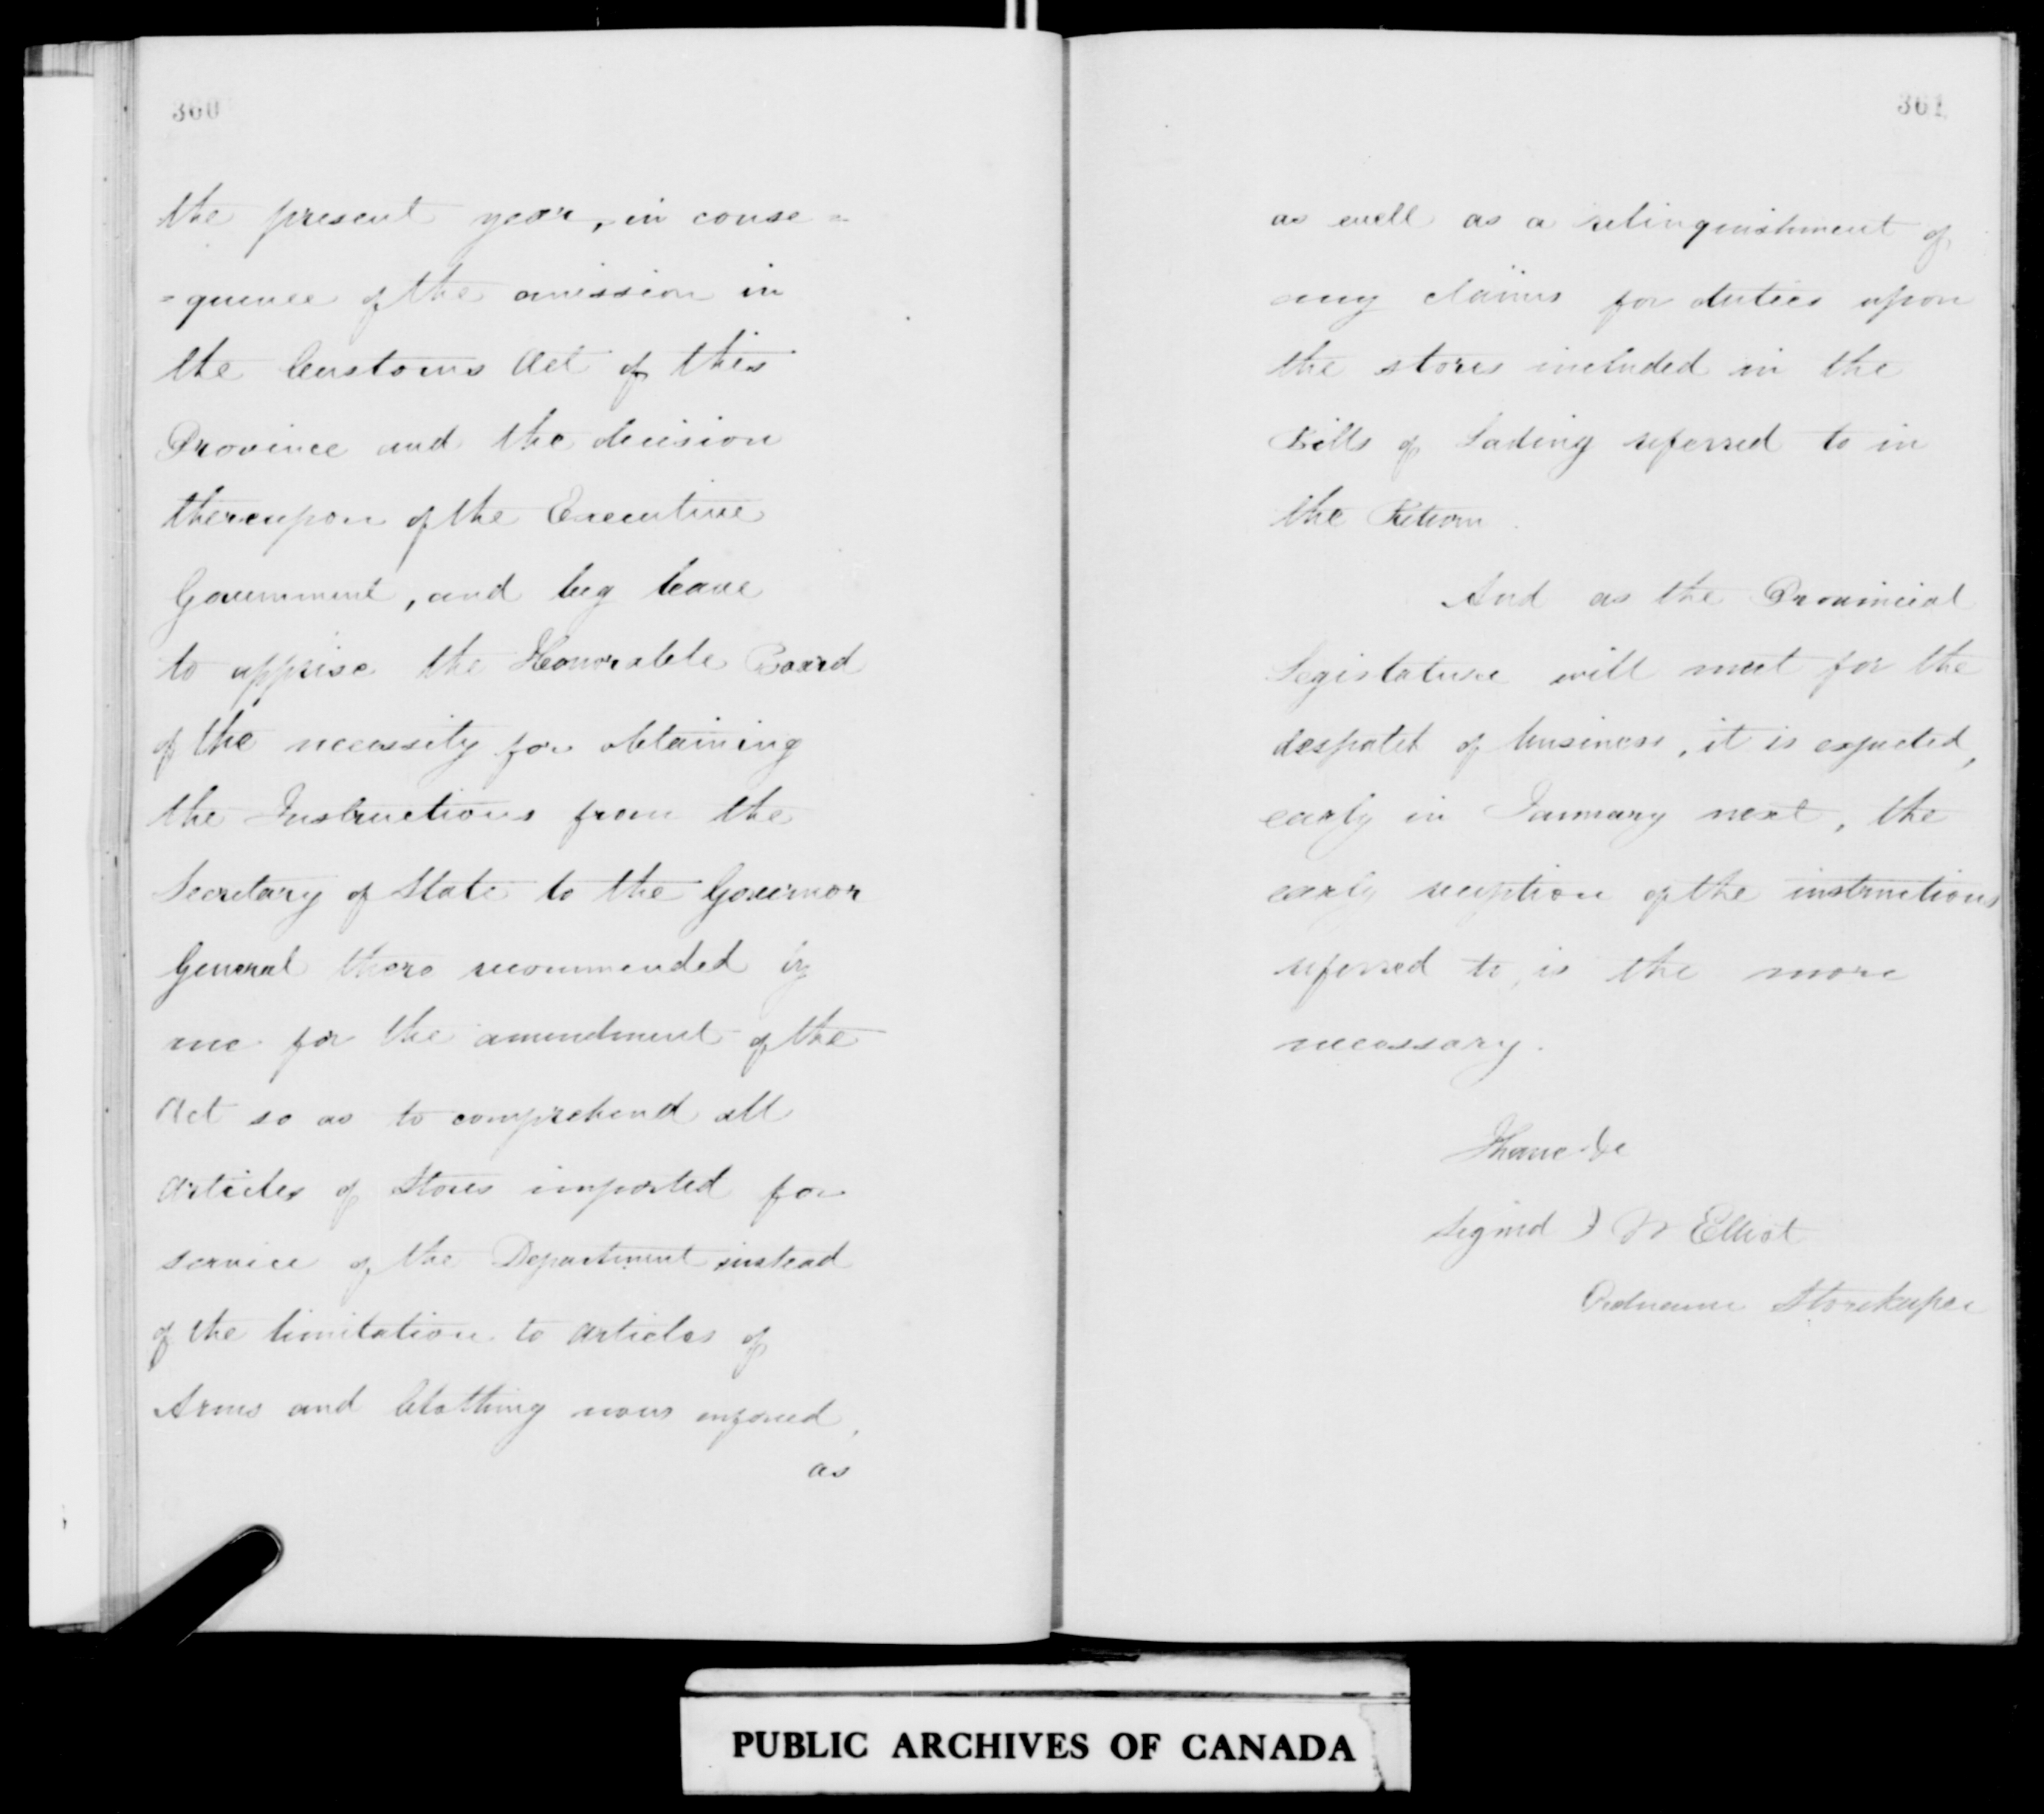 360
the present year, in conse=
=quence of the omission in
the Customs Act of this
Province and the decision
thereupon of the Executive
Government, and beg leave
to apprise the Honorable Board
of the necessity for obtaining
the Instructions from the
Secretary of State to the Governor
General there recommended by
me for the amendment of the
Act so as to comprehend all
articles of Stores imported for
service of the Department instead
of the limitation to articles of
Arms and Clothing now enforced,
as
361
as well as a relinquishment of
any claims for duties upon
the stores included in the
Bills of Lading referred to in
the Return.
And as the Provincial
Legislature will meet for the
despatch of business, it is expected,
early in January next, the
early reception of the instructions
referred to, is the more
necessary.
I have &c
Signed) W Elliot
Ordnance Storekeeper
PUBLIC ARCHIVES OF CANADA